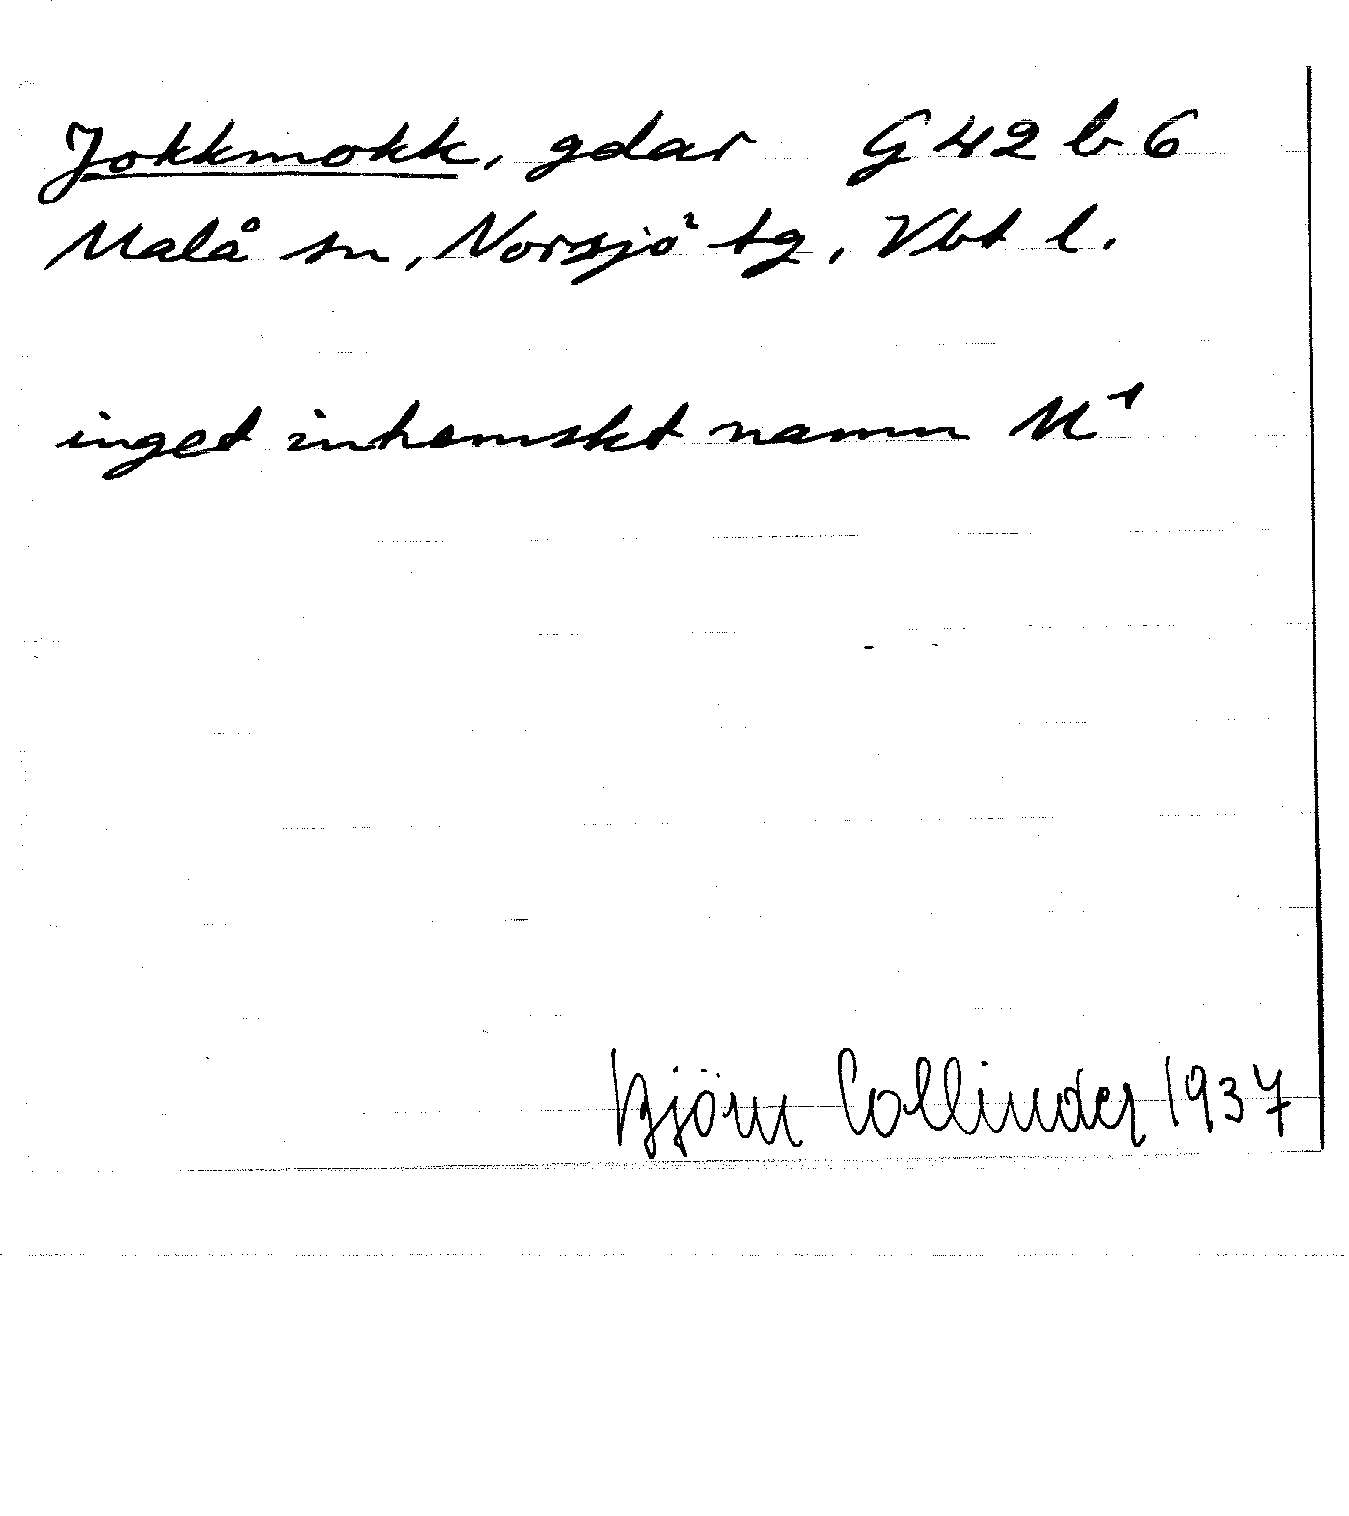 Jokkmokk, gdar G 42 b 6
Malå sn, Norsjö tg, Vbt l.
inget inhemskt namn M¹
Björn Collinder 1937